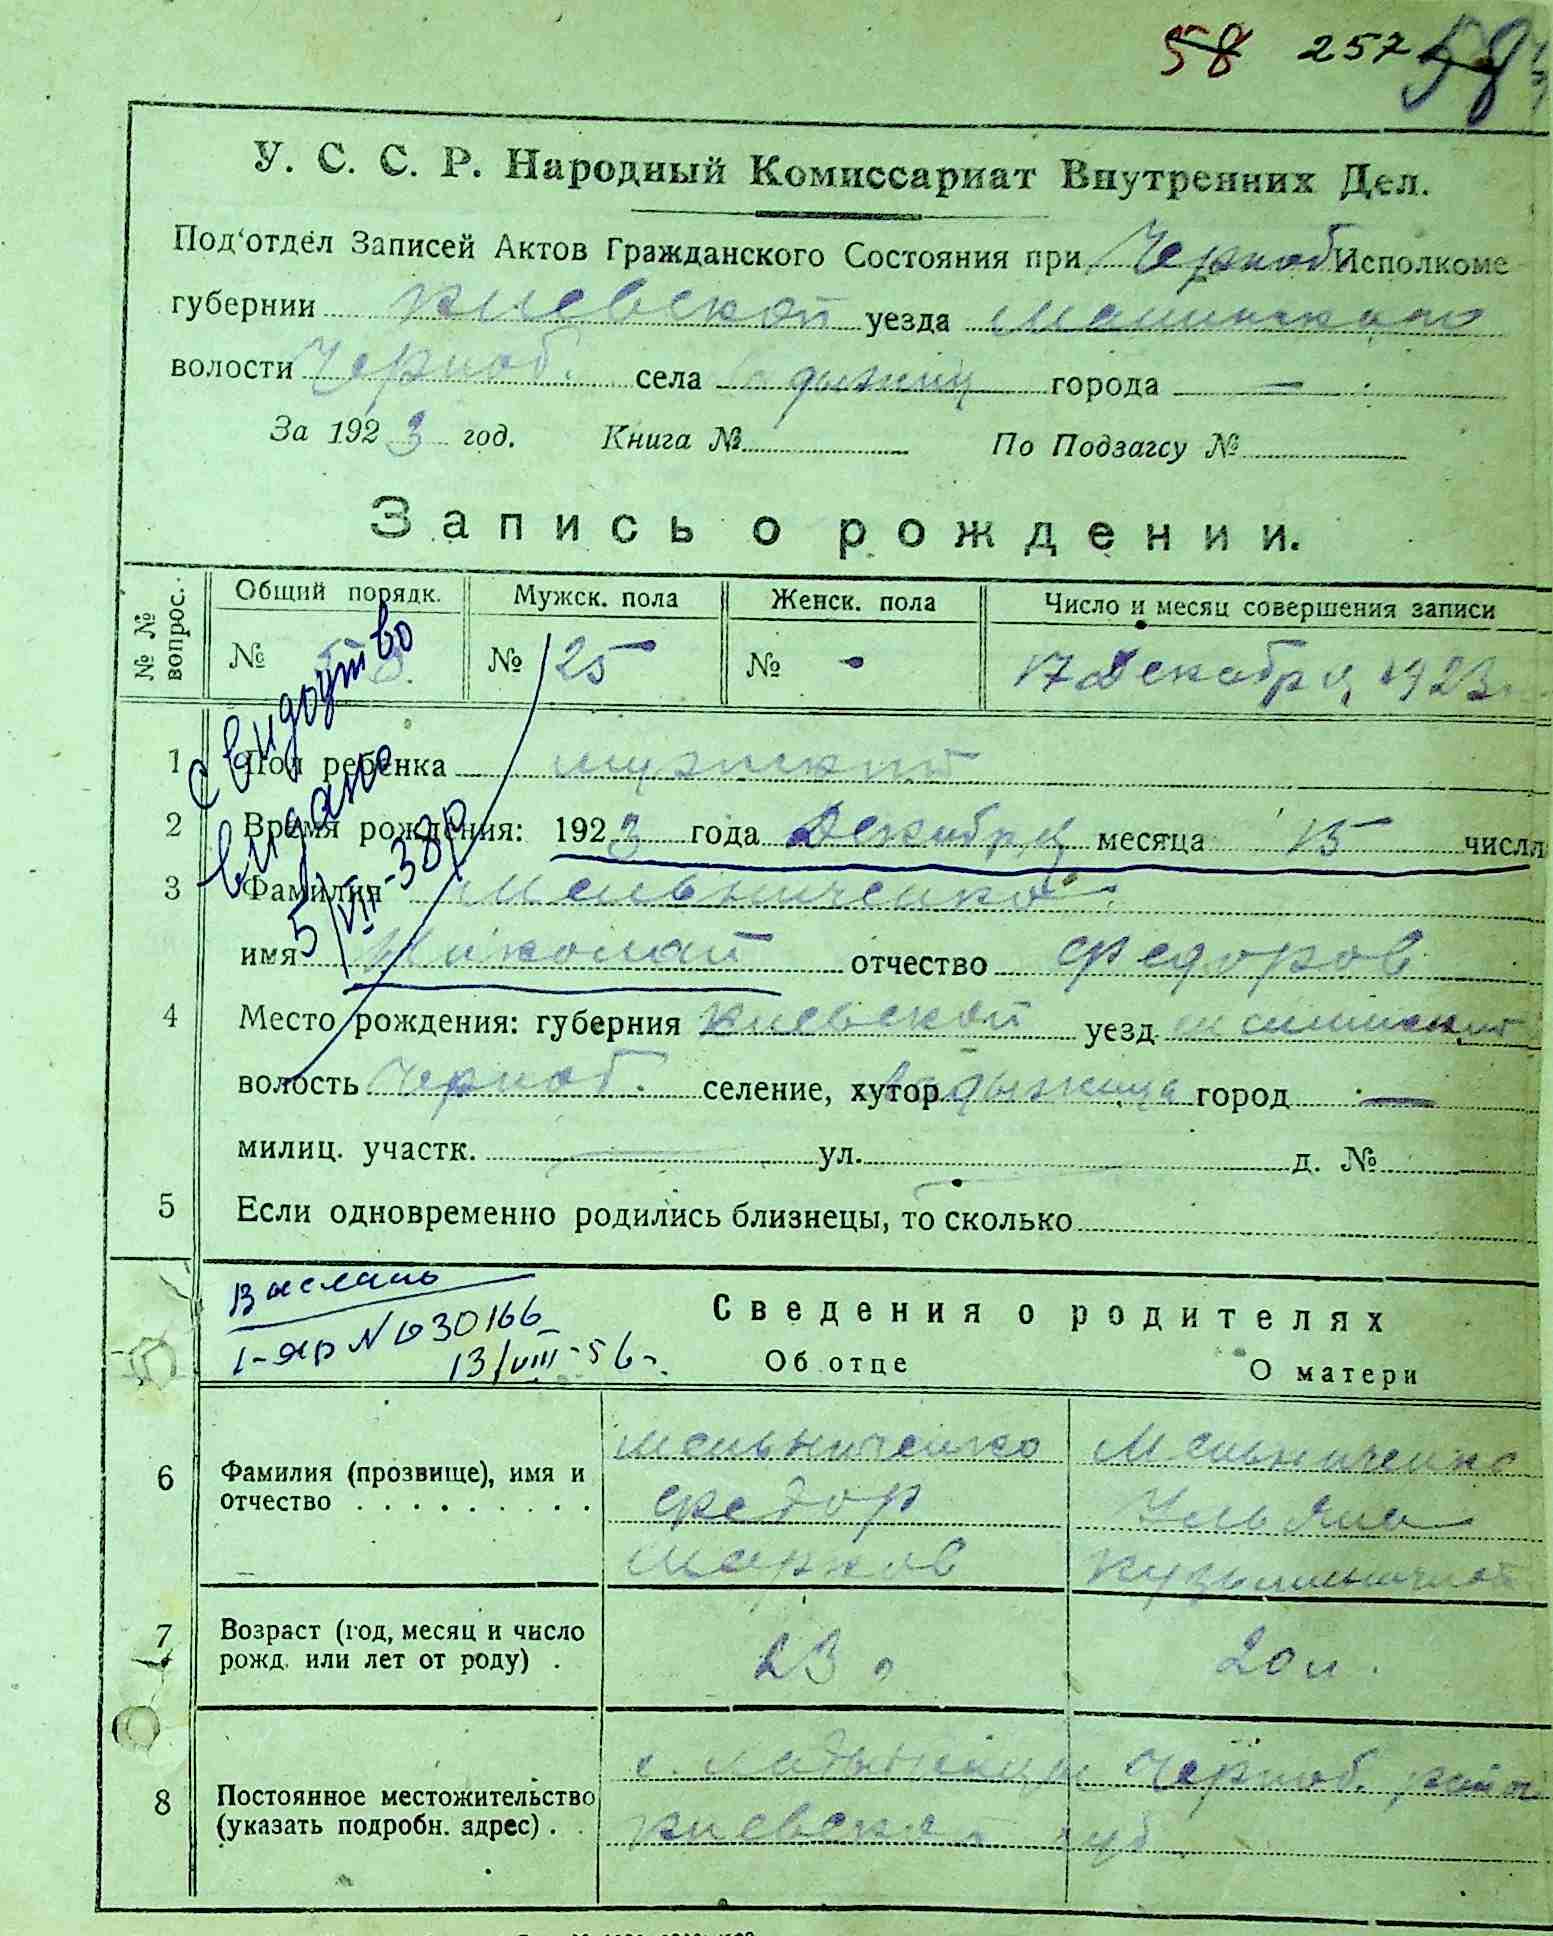 58 257 58
У. С. С. Р. Народный Комиссариат Внутренних Дел.
Под'отдел Записей Актов Гражданского Состояния при Черноб Исполкоме
губернии Киевской уезда
волости Черноб. села города —
За 1923 год. Книга № По Подзагсу №
Запись о рождении.
№ № вопрос. Общий порядк. Мужск. пола Женск. пола Число и месяц совершения записи
№ № 25 № - 17 Декабря 1923
свидоцтво
видано
5/VII-38р
1 Пол ребенка мужский
2 Время рождения: 1923 года Декабря месяца 15 числа
3 Фамилия Мельниченко
имя Николай отчество Федоров
4 Место рождения: губерния Киевской уезд
волость Черноб. селение, хутор город —
милиц. участк. ул. д. №
5 Если одновременно родились близнецы, то сколько
Выслань
№ 030166
13/VIII-56г.
Сведения о родителях
Об отце О матери
6 Фамилия (прозвище), имя и отчество
Мельниченко Мельниченко
Федор Ульяна
Марков
7 Возраст (год, месяц и число рожд. или лет от роду) . 23 20 л.
8 Постоянное местожительство (указать подробн. адрес) .
с. Черноб. район
Киевской губ